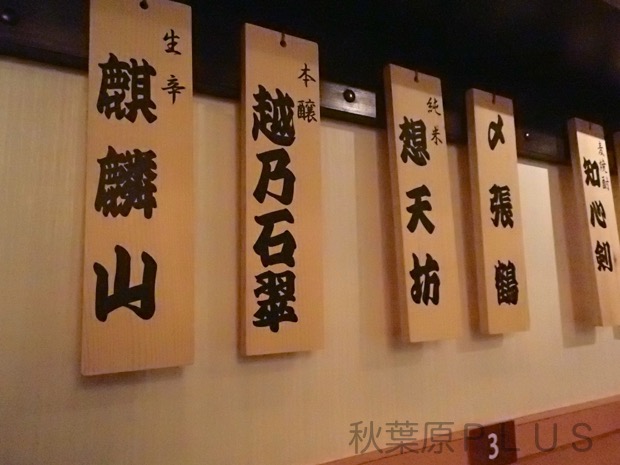 生辛
麒麟山
本醸
越乃石翠
純米
想天坊
〆張鶴
麦焼酎
知心剣
3
秋葉原PLUS